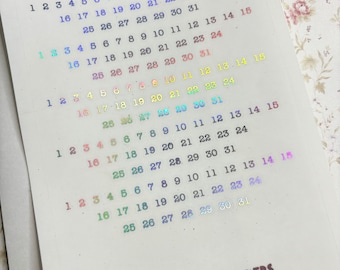 1 2 3 4 5 6 7 8 9 10 11 12 13 14 15
16 17 18 19 20 21 22 23 24
25 26 27 28 29 30 31
1 2 3 4 5 6 7 8 9 10 11 12 13 14 15
16 17 18 19 20 21 22 23 24
25 26 27 28 29 30 31
1 2 3 4 5 6 7 8 9 10 11 12 13 14 15
16 17 18 19 20 21 22 23 24
25 26 27 28 29 30 31
1 2 3 4 5 6 7 8 9 10 11 12 13 14 15
16 17 18 19 20 21 22 23 24
25 26 27 28 29 30 31
1 2 3 4 5 6 7 8 9 10 11 12 13 14 15
16 17 18 19 20 21 22 23 24
25 26 27 28 29 30 31